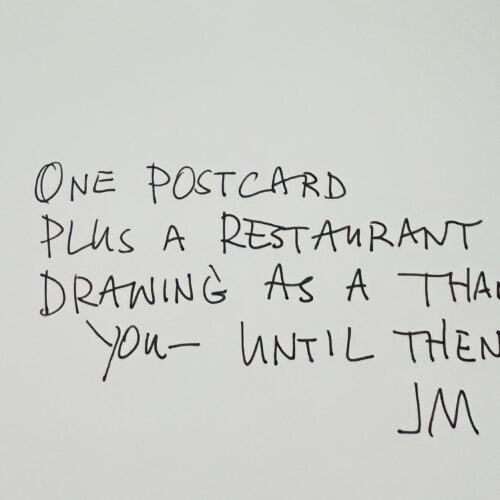 ONE POSTCARD
PLUS A RESTAURANT
DRAWING AS A THA
YOU— UNTIL THEN
JM